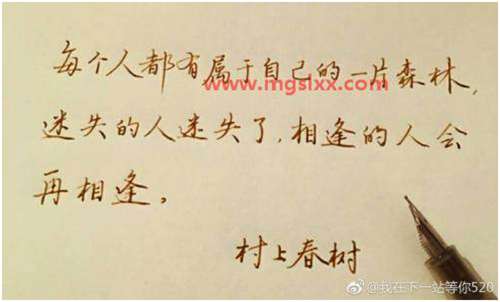 每个人都有属于自己的一片森林,
www.mgslxx.com
迷失的人迷失了,相逢的人会
再相逢。
村上春树
@我在下一站等你520